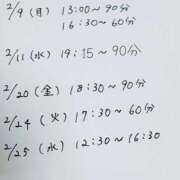 2/9 (月) 13:00〜90分
16:30〜60分
2/11 (水) 19:15〜90分
2/20 (金) 18:30〜90分
2/24 (火) 17:30〜60分
2/25 (水) 12:30〜16:30